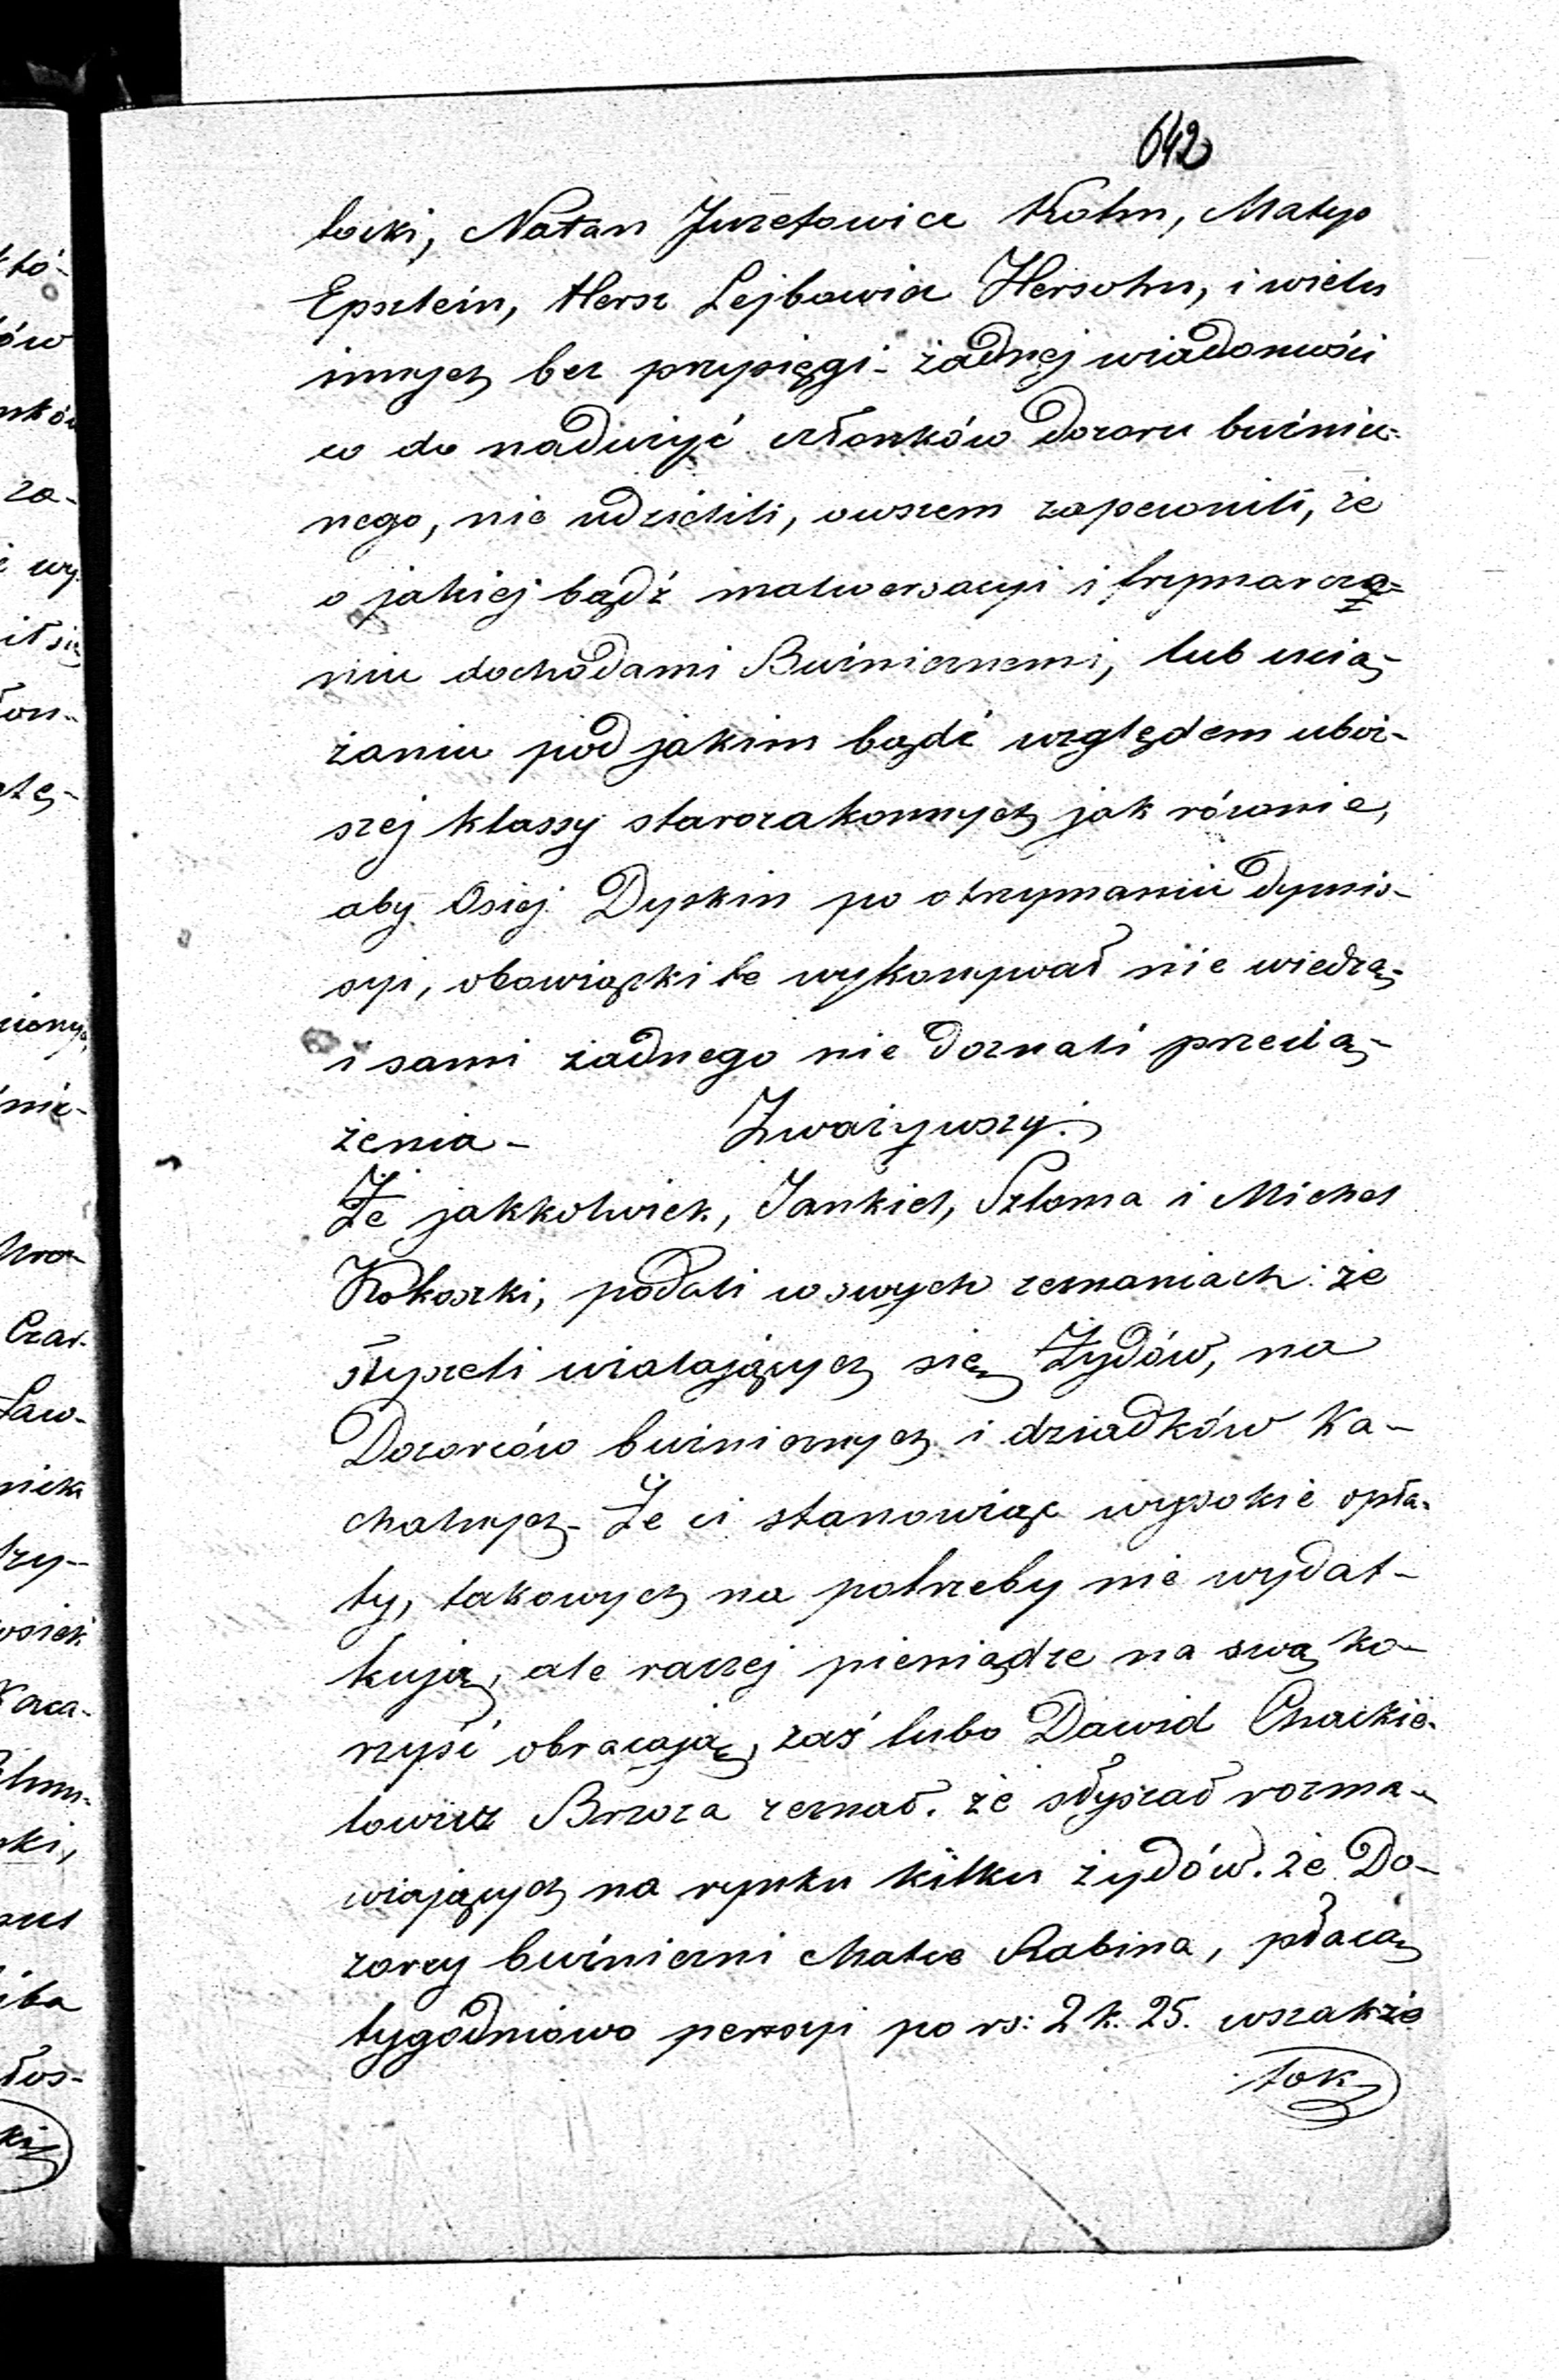 642
łocki, Natan Juzefowicz Kohn, Matys
Epsztein, Hersz Lejbowicz Hersohn, i wielu
innych bez przysięgi - żadnej wiadomości
co do nadużyć członków dozoru bużnicz-
nego, nie udzielili, owszem zapewnili, że
o jakiej bądź malwersacyi i frymarcza-
niu dochodami Bużnicznemi, lub uciąż-
żaniu pod jakim bądź względem uboż-
szej klassy starozakonnych jak równie,
aby Osiej Dyskin po otrzymaniu dymis-
syi, obowiązki te wykonywał nie wiedzą,
i sami żadnego nie doznali przecią-
żenia - Zważywszy:
Że jakkolwiek, Jankiel, Szloma i Michel
Kokoszki, podali w swych zeznaniach: że
słyszeli użalających się Żydów, na
Dozorców bużnicznych i dziadków Ka-
chalnych - Że ci stanowiąc wysokie opła-
ty, takowych na potrzeby nie wydat-
kują, ale raczej pieniądze na swą ko-
rzyść obracają, zaś lubo Dawid Chackie-
lowicz Brzoza zeznał. że słyszał rozma-
wiających na rynku kilku żydów. że Do-
zorcy bużniczni Matce Rabina, płacą
tygodniowo pensyi po rs: 2 k. 25. wszakże
tok